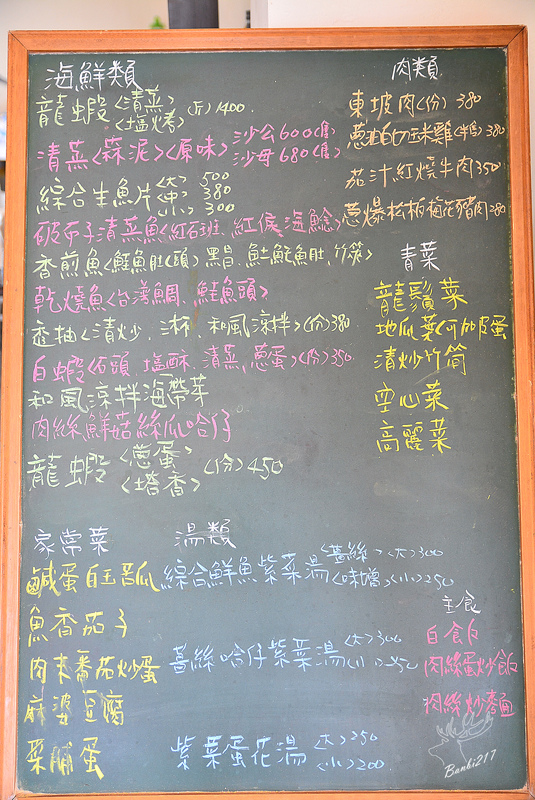 海鮮類
龍蝦<清蒸>
<塩烤>(斤)1400
清蒸<蒜泥><原味>沙公600(隻)
沙母680(隻)
綜合生魚片<大>500
<中>380
<小>300
破布子清蒸魚<紅石班、紅條、海鯰>
香煎魚<鮭魚肚(頭)黑昌、魠魚肚、竹筴>
乾燒魚<台灣鯛、鮭魚頭>
透抽<清炒、沐、和風涼拌>(份)380
白蝦<石頭、塩酥、清蒸、蔥蛋>(份)350
和風涼拌海帶芽
肉絲鮮菇絲瓜哈仔
龍蝦<蔥蛋>
<塔香>(份)450
肉類
東坡肉(份)380
蔥油白切玉米雞(半隻)380
茄汁紅燒牛肉350
蔥爆松板梅花豬肉280
青菜
龍鬚菜
地瓜葉(可加皮蛋
清炒竹筒
空心菜
高麗菜
家常菜
鹹蛋白玉苦瓜
魚香茄子
肉末番茄炒蛋
麻婆豆腐
菜脯蛋
湯類
綜合鮮魚紫菜湯<薑絲><大>300
<味噌><小>250
薑絲哈仔紫菜湯<大>300
<小>250
紫菜蛋花湯<大>250
<小>200
主食
白飯
肉絲蛋炒飯
肉絲炒麵
Banbi217